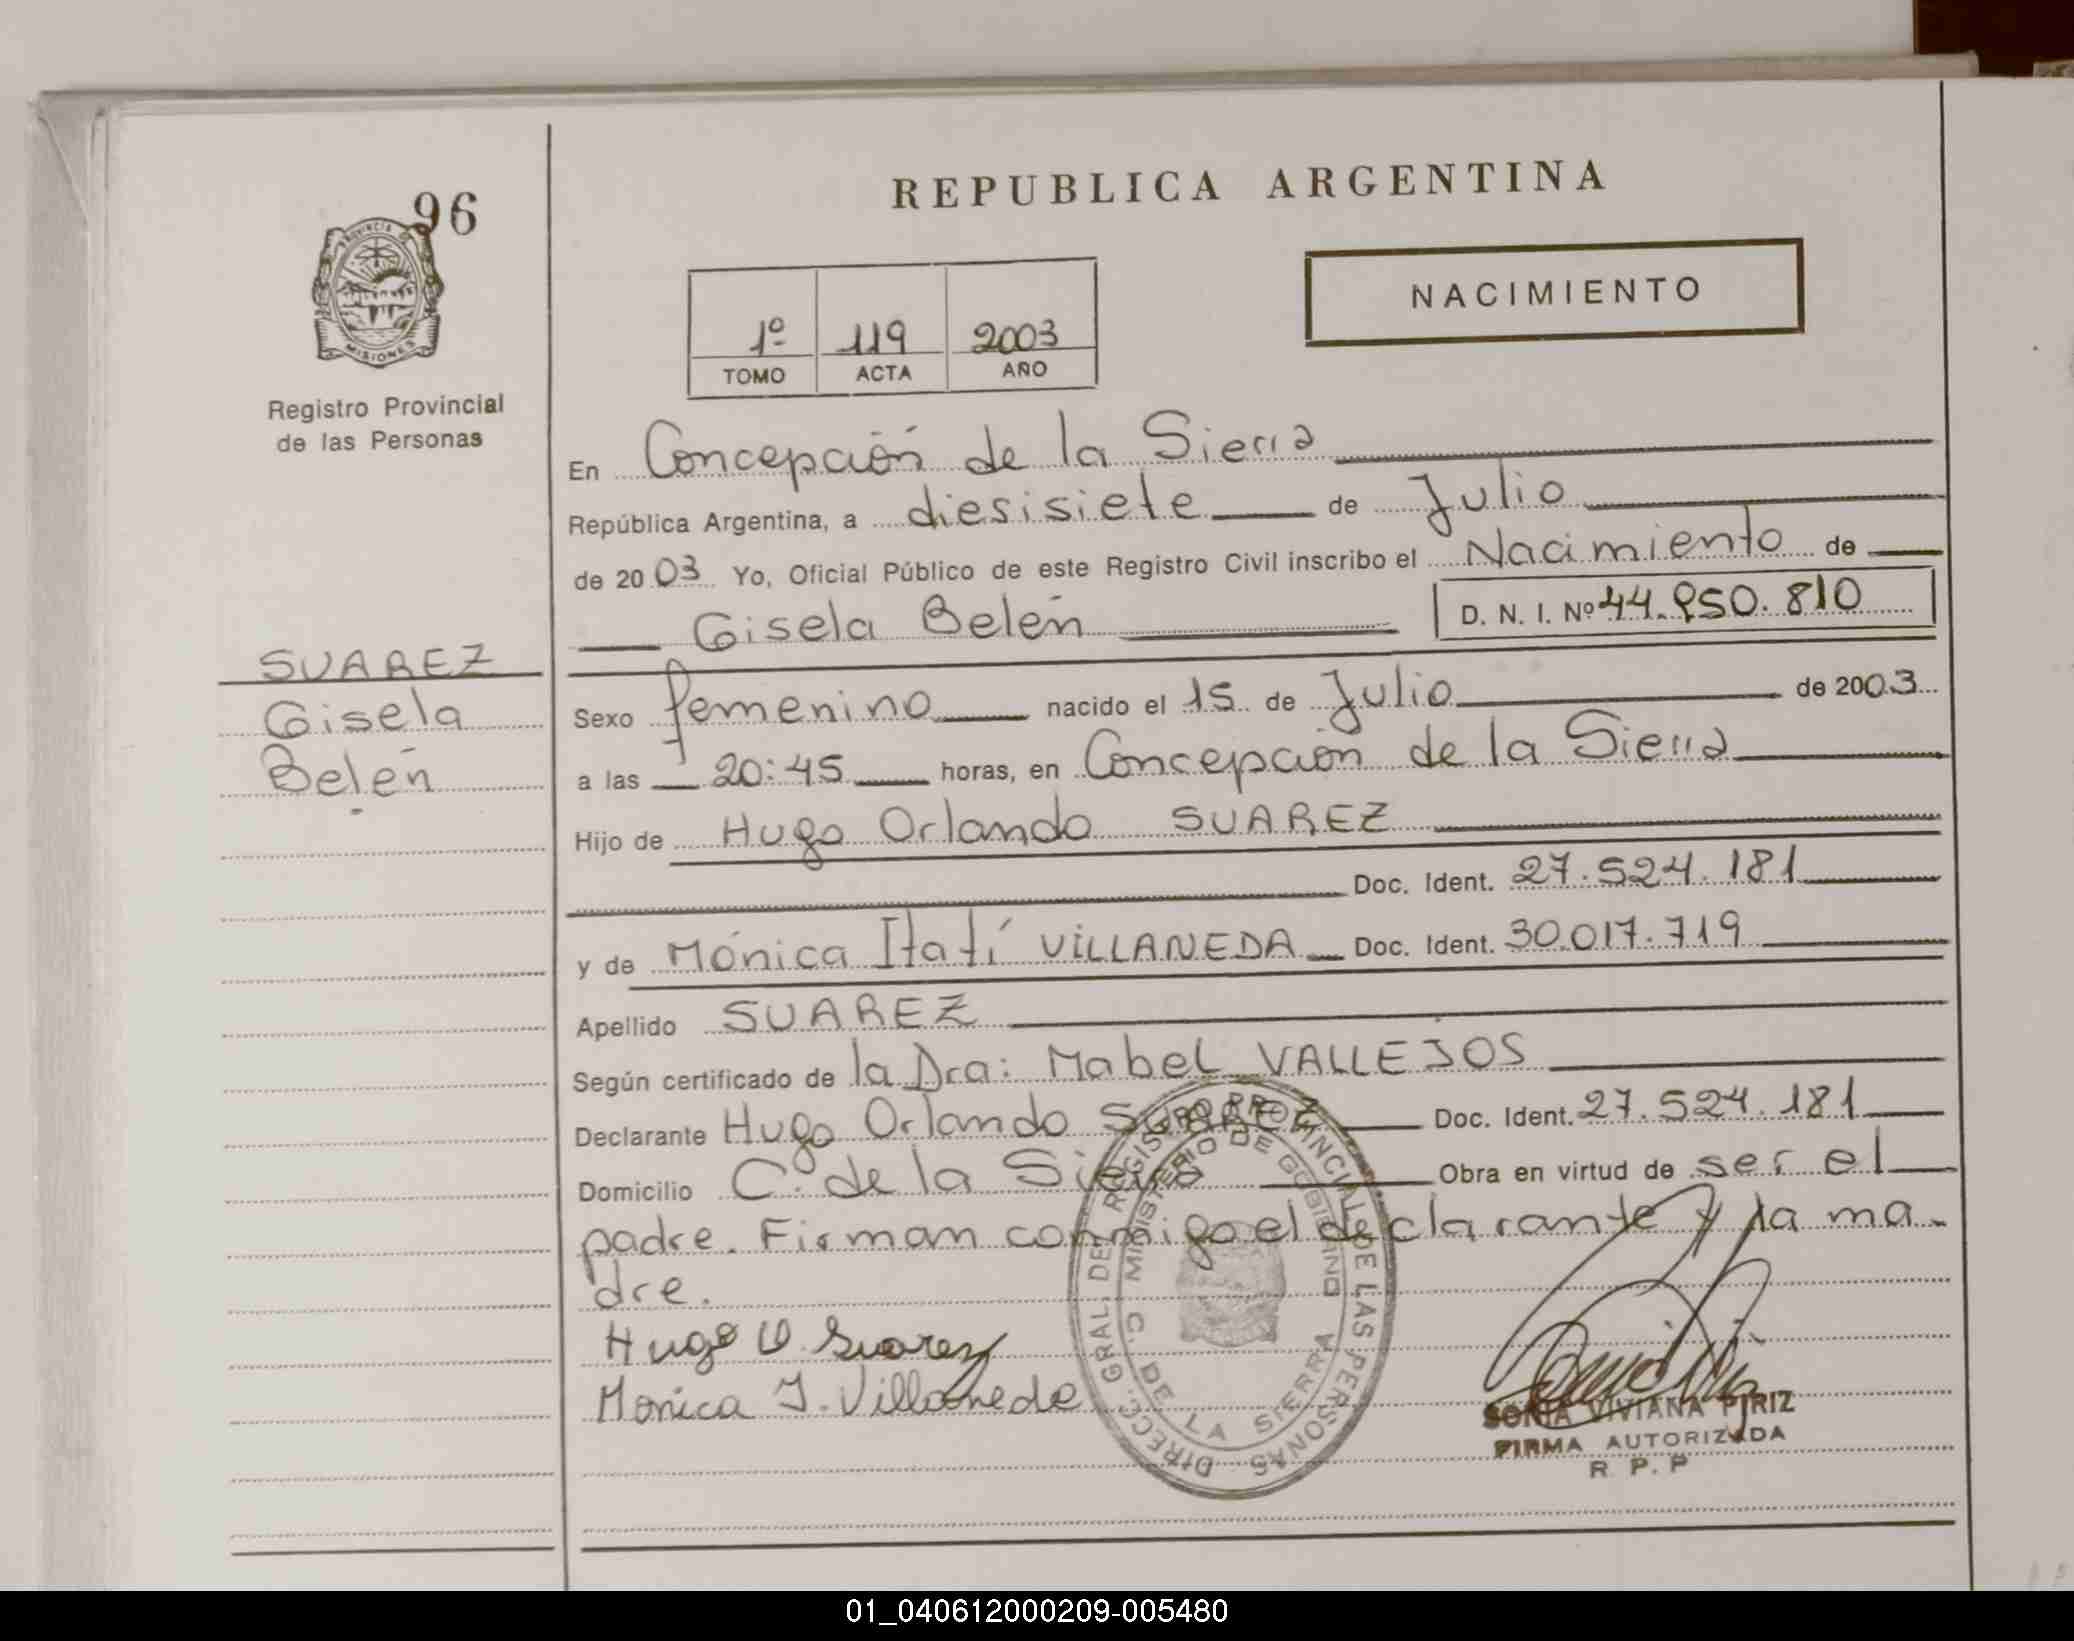 96
REPUBLICA ARGENTINA
NACIMIENTO
1º 119 2003
TOMO ACTA AÑO
PROVINCIA DE MISIONES
Registro Provincial
de las Personas
En Concepción de la Sierra
República Argentina, a diesisiete de Julio
de 2003 Yo, Oficial Público de este Registro Civil inscribo el Nacimiento de
Gisela Belén D. N. I. Nº 44.950.810
SUAREZ
Gisela
Belén
Sexo femenino nacido el 15 de Julio de 2003
a las 20:45 horas, en Concepción de la Sierra
Hijo de Hugo Orlando SUAREZ
Doc. Ident. 27.524.181
y de Mónica Itatí VILLANEDA Doc. Ident. 30.017.719
Apellido SUAREZ
Según certificado de la Dra: Mabel VALLEJOS
Declarante Hugo Orlando SUAREZ Doc. Ident. 27.524.181
Domicilio C. de la Sierra Obra en virtud de ser el
padre. Firman conmigo el declarante y la ma-
dre.
Hugo O. Suarez
Monica I. Villaneda
DIRECC. GRAL. DEL REGISTRO PROVINCIAL DE LAS PERSONAS
MINISTERIO DE GOBIERNO
C. DE LA SIERRA
SONIA VIVIANA PIRIZ
FIRMA AUTORIZADA
R. P. P
01_040612000209-005480